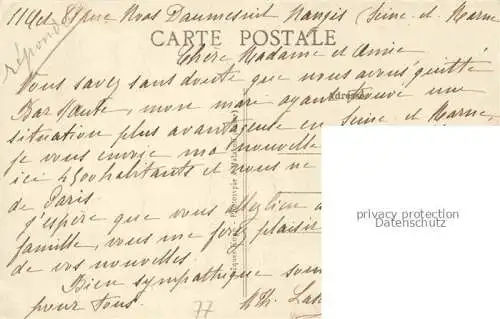 répondu
Nangis Seine-et-Marne
CARTE POSTALE
Chère Madame et Amie
Vous savez sans doute que nous avons quitté
Bar s/Aube, mon mari ayant trouvé une
Adresse
situation plus avantageuse en Seine et Marne,
je vous envoie ma nouvelle
ici 4500 habitants et nous ne
de Paris.
J'espère que vous
famille, vous me ferez plaisir
de vos nouvelles.
Bien sympathique
pour tous.
77
privacy protection
Datenschutz